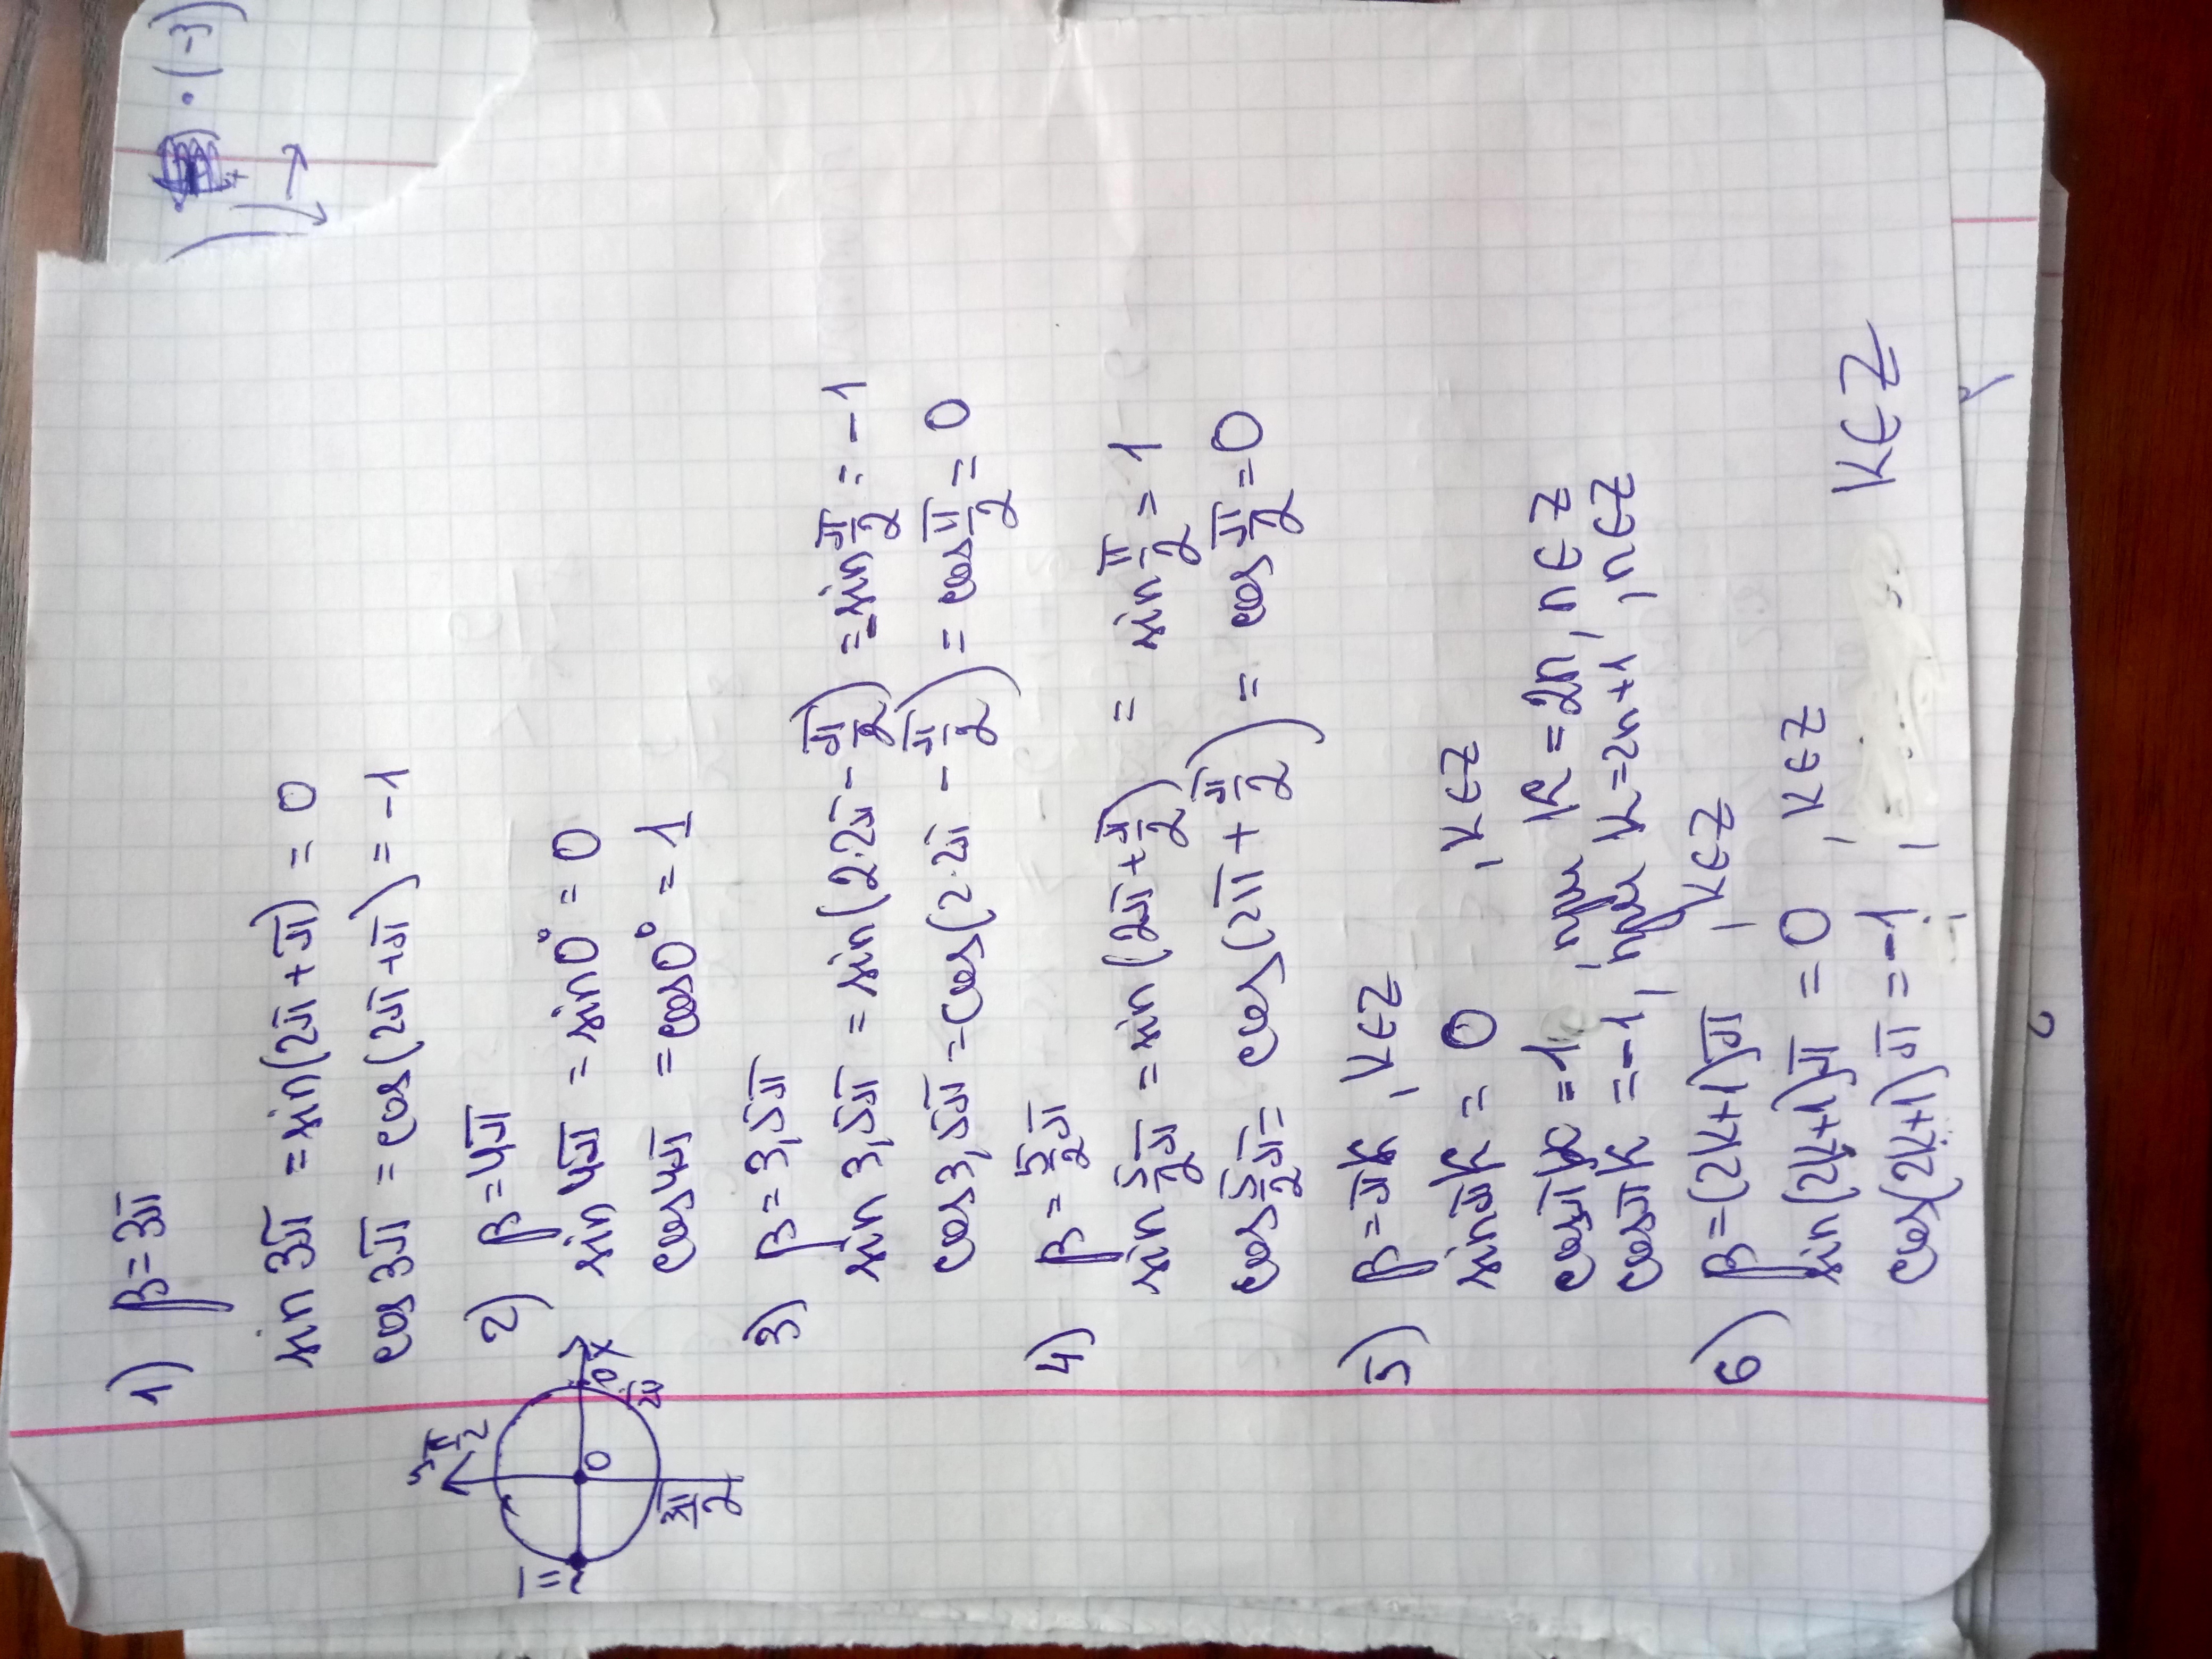 · (-3)
1) β = 3π
sin 3π = sin(2π + π) = 0
cos 3π = cos(2π + π) = -1
2) β = 4π
sin 4π = sin 0° = 0
cos 4π = cos 0° = 1
π
0
x
2π
3) β = 3,5π
sin 3,5π = sin(2·2π - π/2) = -sin π/2 = -1
cos 3,5π = cos(2·2π - π/2) = cos π/2 = 0
4) β = 5/2 π
sin 5/2 π = sin(2π + π/2) = sin π/2 = 1
cos 5/2 π = cos(2π + π/2) = cos π/2 = 0
5) β = πk, k ∈ Z
sin πk = 0, k ∈ Z
cos πk = 1, при k = 2n, n ∈ Z
cos πk = -1, при k = 2n+1, n ∈ Z
6) β = (2k+1)π, k ∈ Z
sin(2k+1)π = 0, k ∈ Z
cos(2k+1)π = -1, k ∈ Z